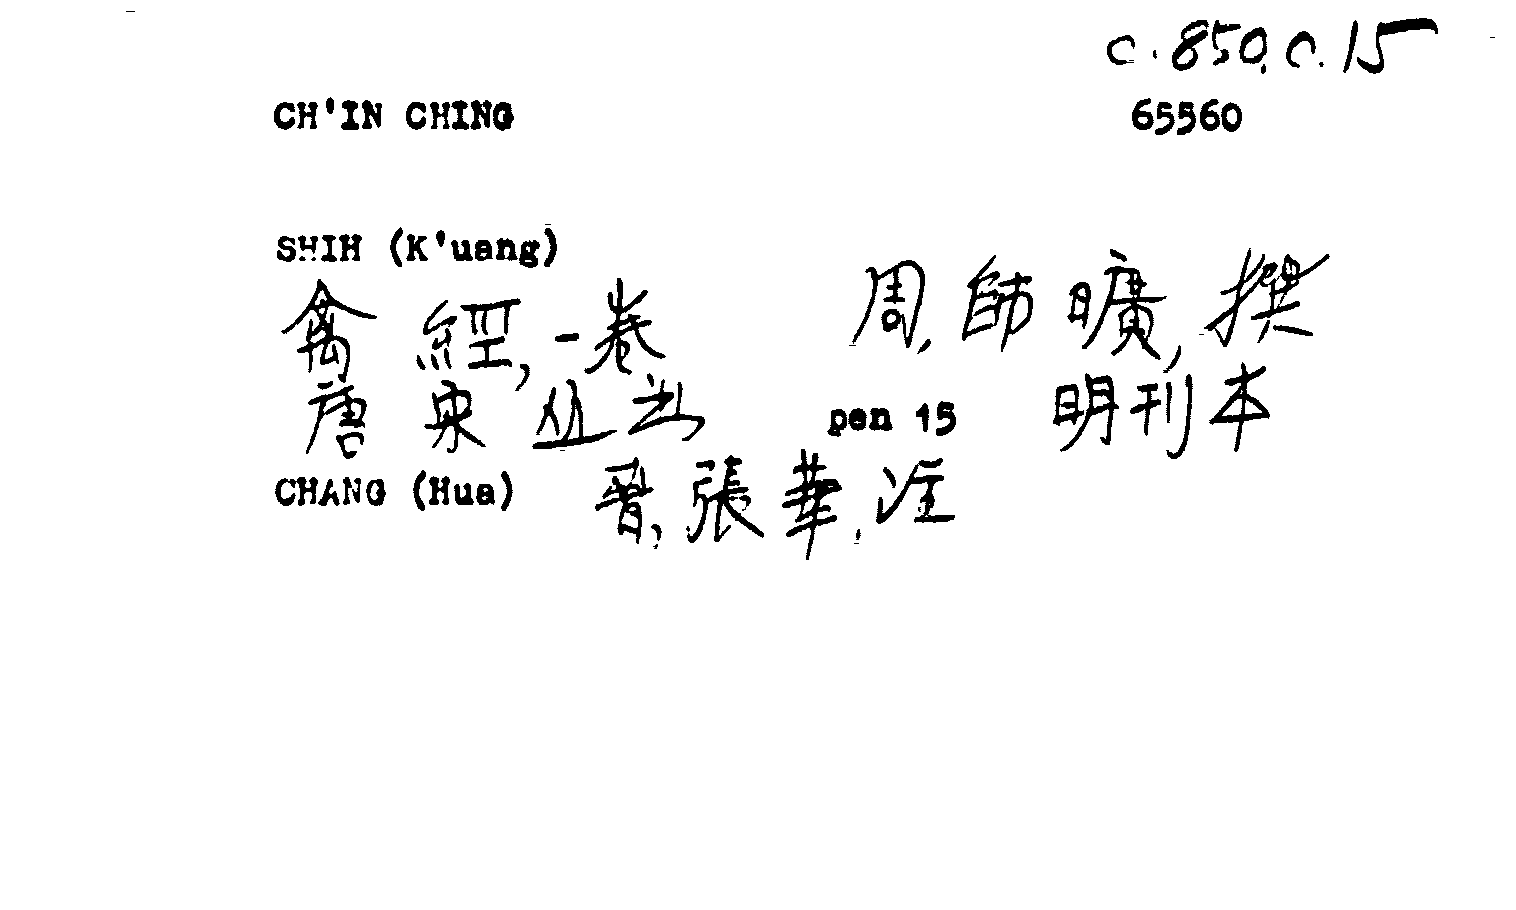 c.850.c.15
CH'IN CHING 65560
SHIH (K'uang)
禽經,一卷 周,師曠,撰
唐宋丛书 pen 15 明刊本
CHANG (Hua) 晋,張華,注